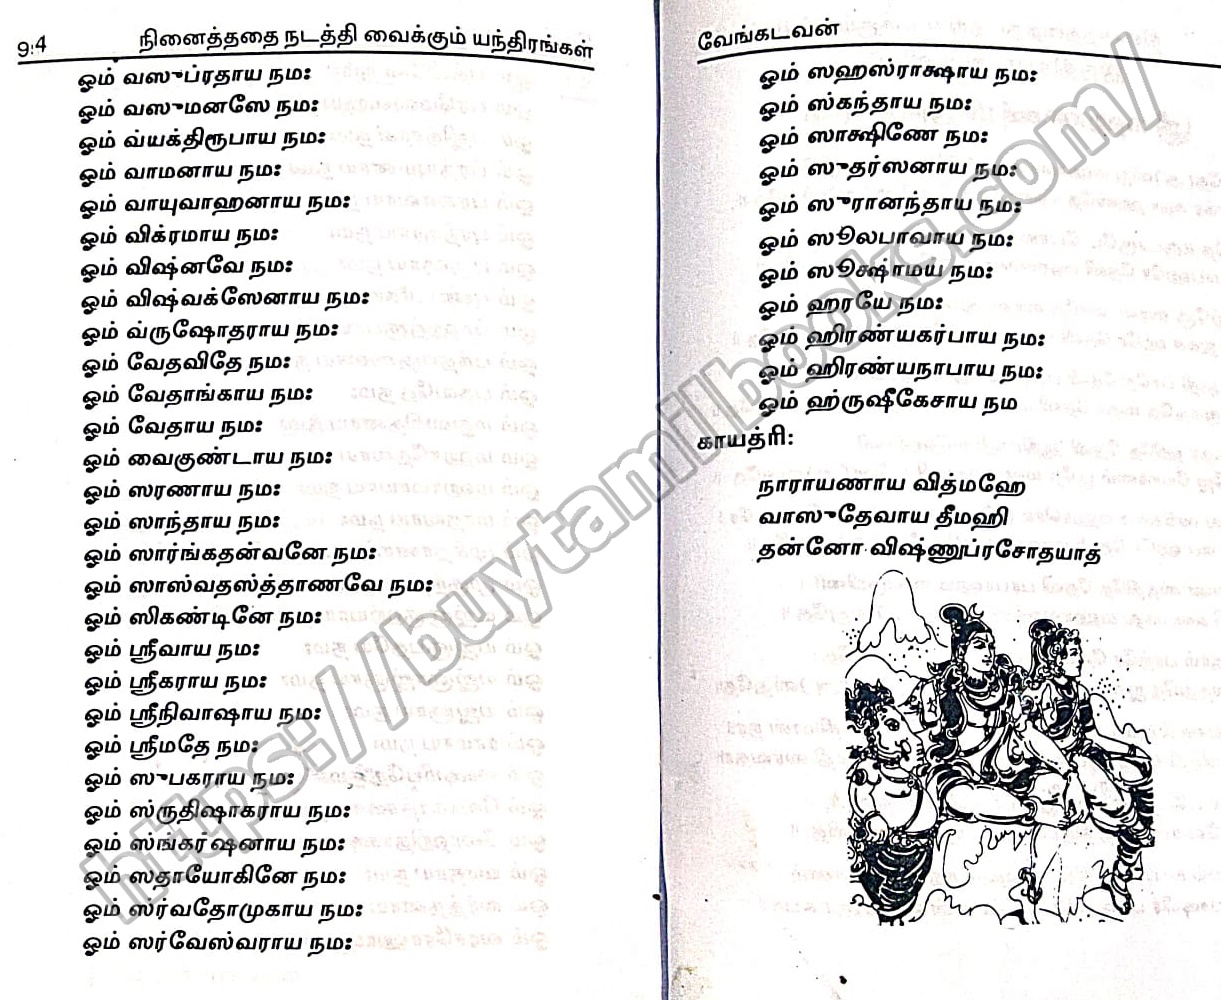 9:4 நினைத்ததை நடத்தி வைக்கும் யந்திரங்கள்
ஓம் வஸுப்ரதாய நமஃ
ஓம் வஸுமனஸே நமஃ
ஓம் வ்யக்திரூபாய நமஃ
ஓம் வாமனாய நமஃ
ஓம் வாயுவாஹனாய நமஃ
ஓம் விக்ரமாய நமஃ
ஓம் விஷ்னவே நமஃ
ஓம் விஷ்வக்ஸேனாய நமஃ
ஓம் வ்ருஷோதராய நமஃ
ஓம் வேதவிதே நமஃ
ஓம் வேதாங்காய நமஃ
ஓம் வேதாய நமஃ
ஓம் வைகுண்டாய நமஃ
ஓம் ஸரணாய நமஃ
ஓம் ஸாந்தாய நமஃ
ஓம் ஸார்ங்கதன்வனே நமஃ
ஓம் ஸாஸ்வதஸ்த்தாணவே நமஃ
ஓம் ஸிகண்டினே நமஃ
ஓம் ஸ்ரீவாய நமஃ
ஓம் ஸ்ரீகராய நமஃ
ஓம் ஸ்ரீநிவாஷாய நமஃ
ஓம் ஸ்ரீமதே நமஃ
ஓம் ஸுபகராய நமஃ
ஓம் ஸ்ருதிஷாகராய நமஃ
ஓம் ஸ்ங்கர்ஷனாய நமஃ
ஓம் ஸதாயோகினே நமஃ
ஓம் ஸ்ர்வதோமுகாய நமஃ
ஓம் ஸர்வேஸ்வராய நமஃ
வேங்கடவன்
ஓம் ஸஹஸ்ராக்ஷாய நமஃ
ஓம் ஸ்கந்தாய நமஃ
ஓம் ஸாக்ஷிணே நமஃ
ஓம் ஸுதர்ஸனாய நமஃ
ஓம் ஸுரானந்தாய நமஃ
ஓம் ஸூலபாவாய நமஃ
ஓம் ஸூக்ஷாமய நமஃ
ஓம் ஹரயே நமஃ
ஓம் ஹிரண்யகர்பாய நமஃ
ஓம் ஹிரண்யநாபாய நமஃ
ஓம் ஹ்ருஷீகேசாய நம
காயத்ரி:
நாராயணாய வித்மஹே
வாஸுதேவாய தீமஹி
தன்னோ விஷ்ணுப்ரசோதயாத்
https://buytamilbooks.com/